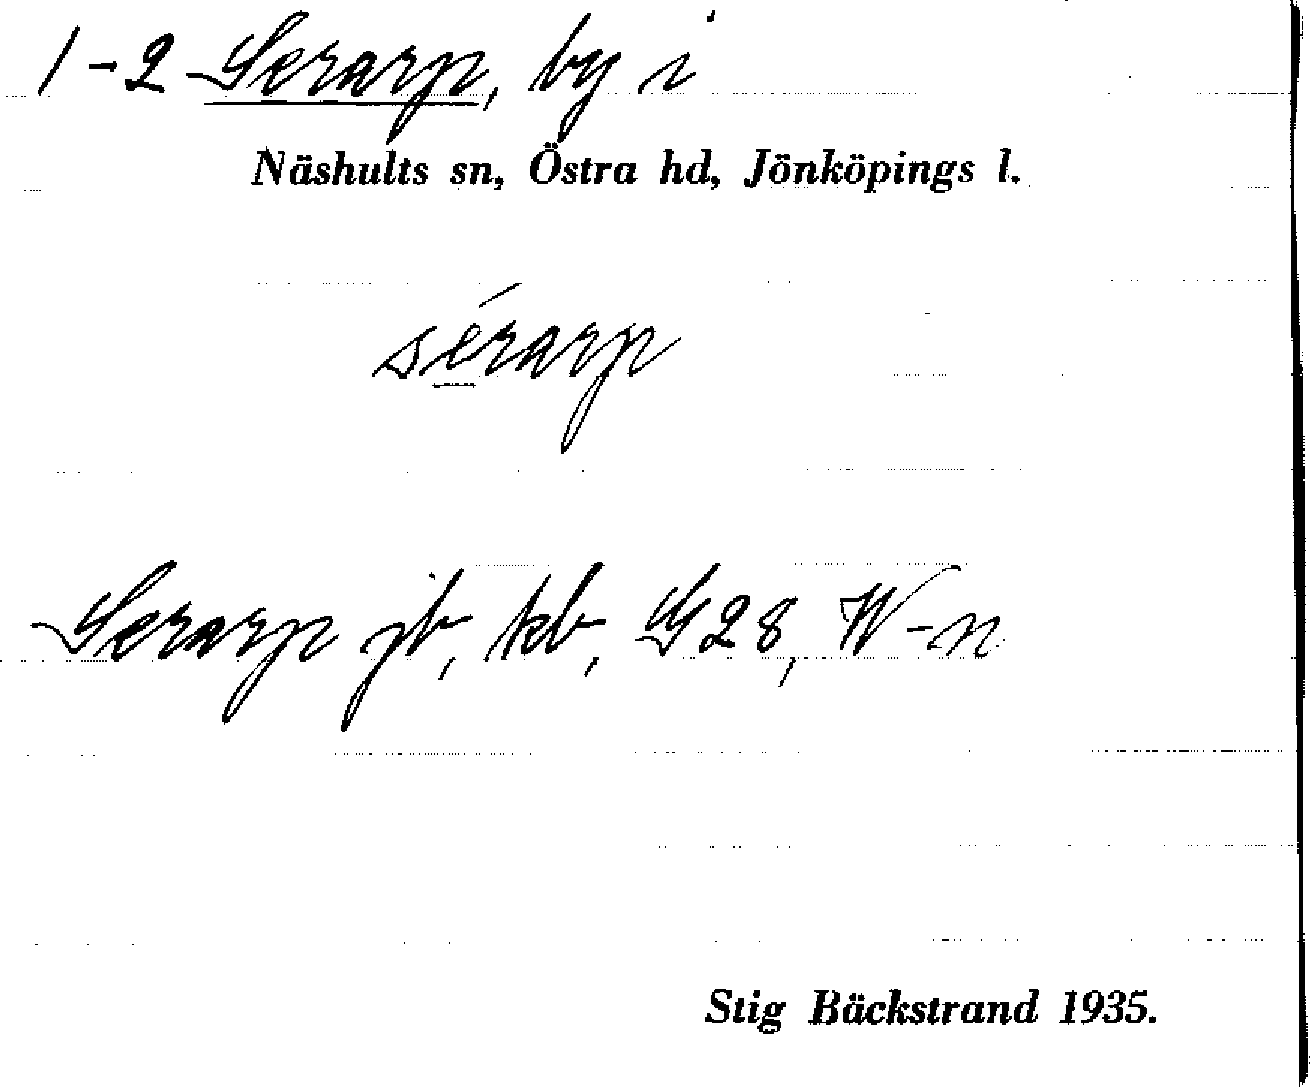 1-2 Serarp, by i
Näshults sn, Östra hd, Jönköpings l.
sérarp
Serarp jb, kb, G28, W-n
Stig Bäckstrand 1935.